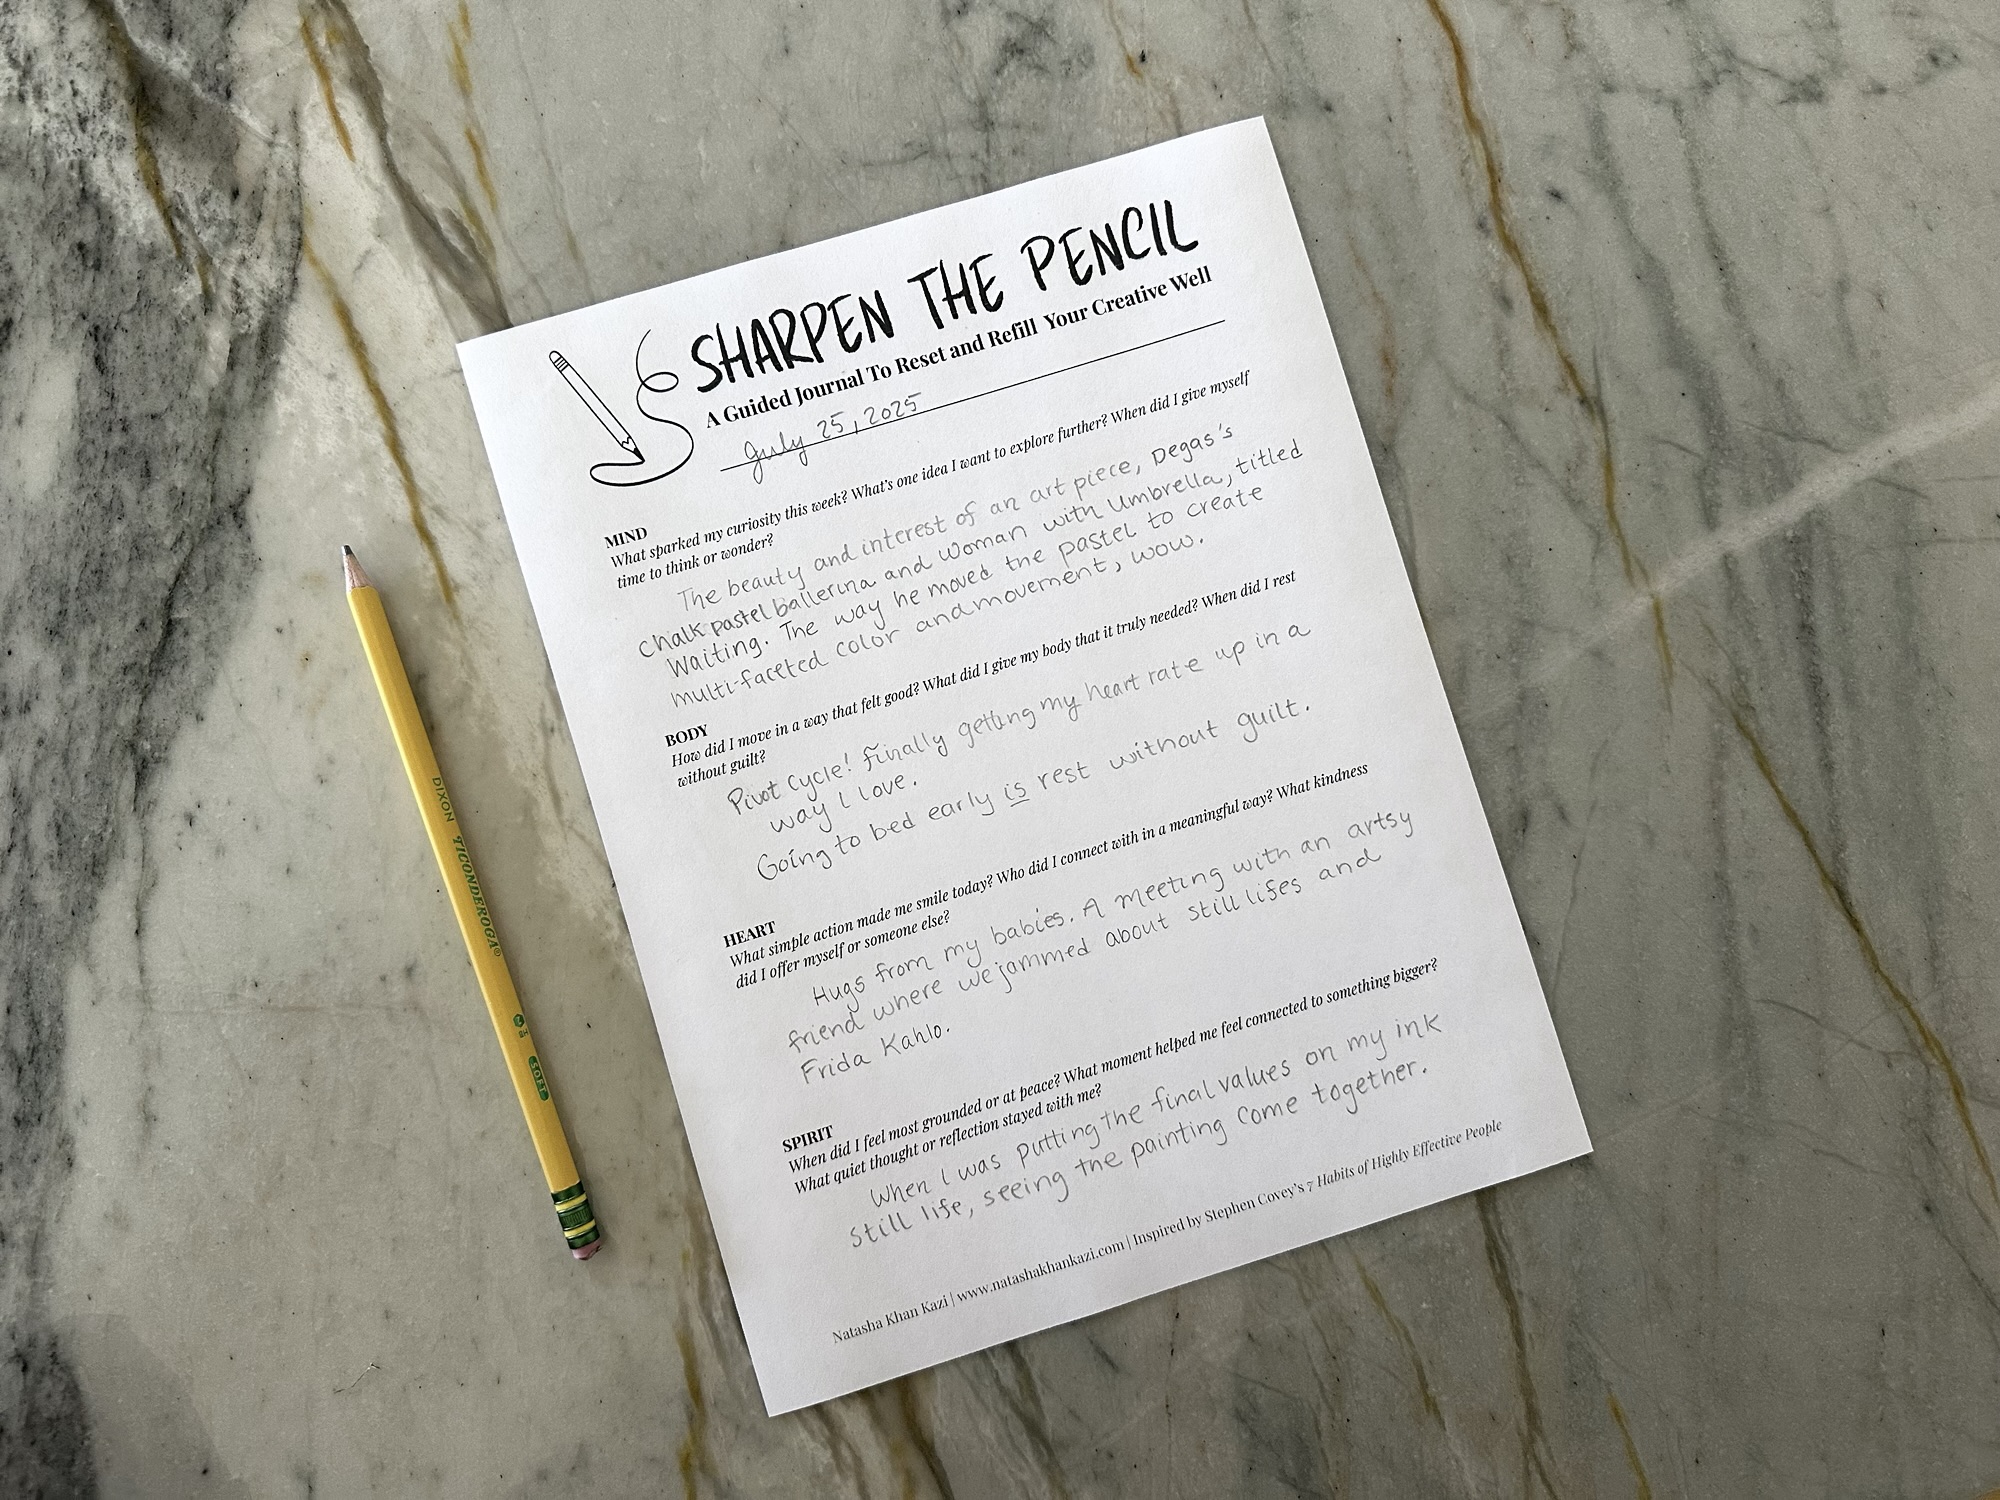 SHARPEN THE PENCIL
A Guided Journal To Reset and Refill Your Creative Well
July 25, 2025
MIND
What sparked my curiosity this week? What's one idea I want to explore further? When did I give myself
time to think or wonder?
The beauty and interest of an art piece, Degas's
chalk pastel ballerina and woman with umbrella, titled
Waiting. The way he moved the pastel to create
multi-faceted color and movement, wow.
BODY
How did I move in a way that felt good? What did I give my body that it truly needed? When did I rest
without guilt?
Pivot Cycle! Finally getting my heart rate up in a
way I love.
Going to bed early is rest without guilt.
HEART
What simple action made me smile today? Who did I connect with in a meaningful way? What kindness
did I offer myself or someone else?
Hugs from my babies. A meeting with an artsy
friend where we jammed about still lifes and
Frida Kahlo.
SPIRIT
When did I feel most grounded or at peace? What moment helped me feel connected to something bigger?
What quiet thought or reflection stayed with me?
When I was putting the final values on my ink
still life, seeing the painting come together.
Natasha Khan Kazi | www.natashakhankazi.com | Inspired by Stephen Covey's 7 Habits of Highly Effective People
DIXON TICONDEROGA®
2 HB
SOFT